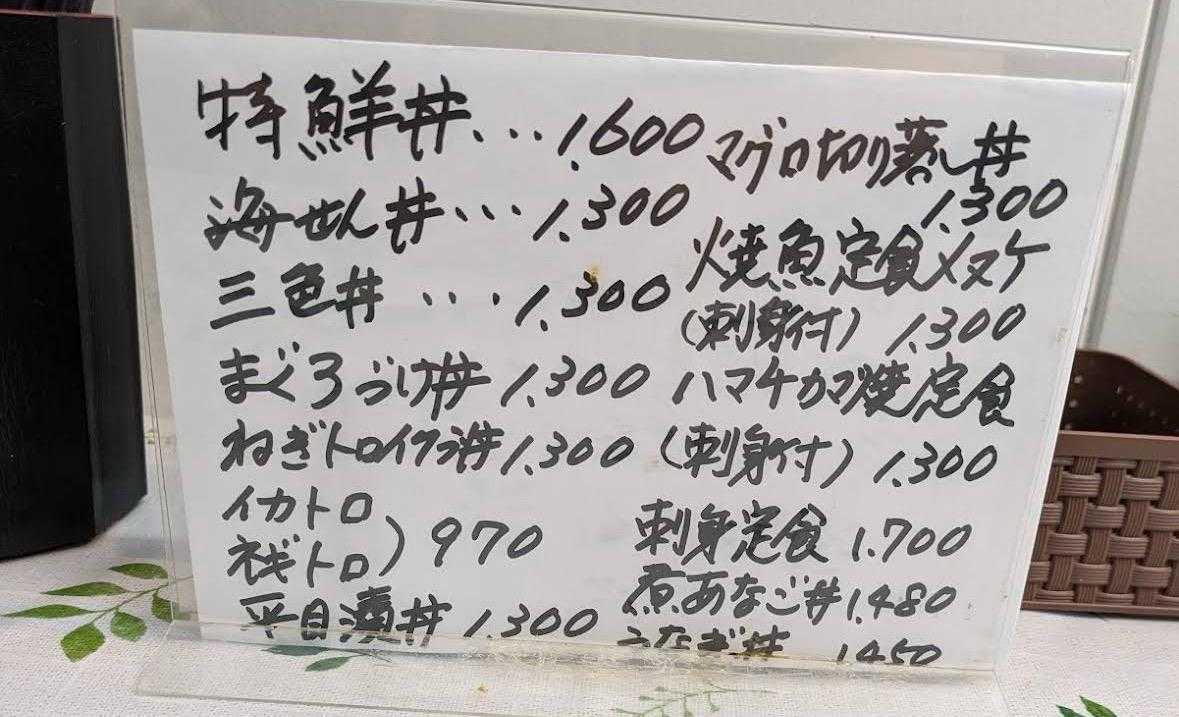 特鮮丼...1.600
海せん丼...1.300
三色丼...1.300
まぐろづけ丼 1.300
ねぎトロイクラ丼 1.300
イカトロ
ネギトロ) 970
平目漬丼 1.300
マグロ切り落し丼
1.300
焼魚定食メヌケ
(刺身付) 1.300
ハマチカマ焼定食
(刺身付) 1.300
刺身定食 1.700
煮あなご丼 1.480
うなぎ丼 1.450